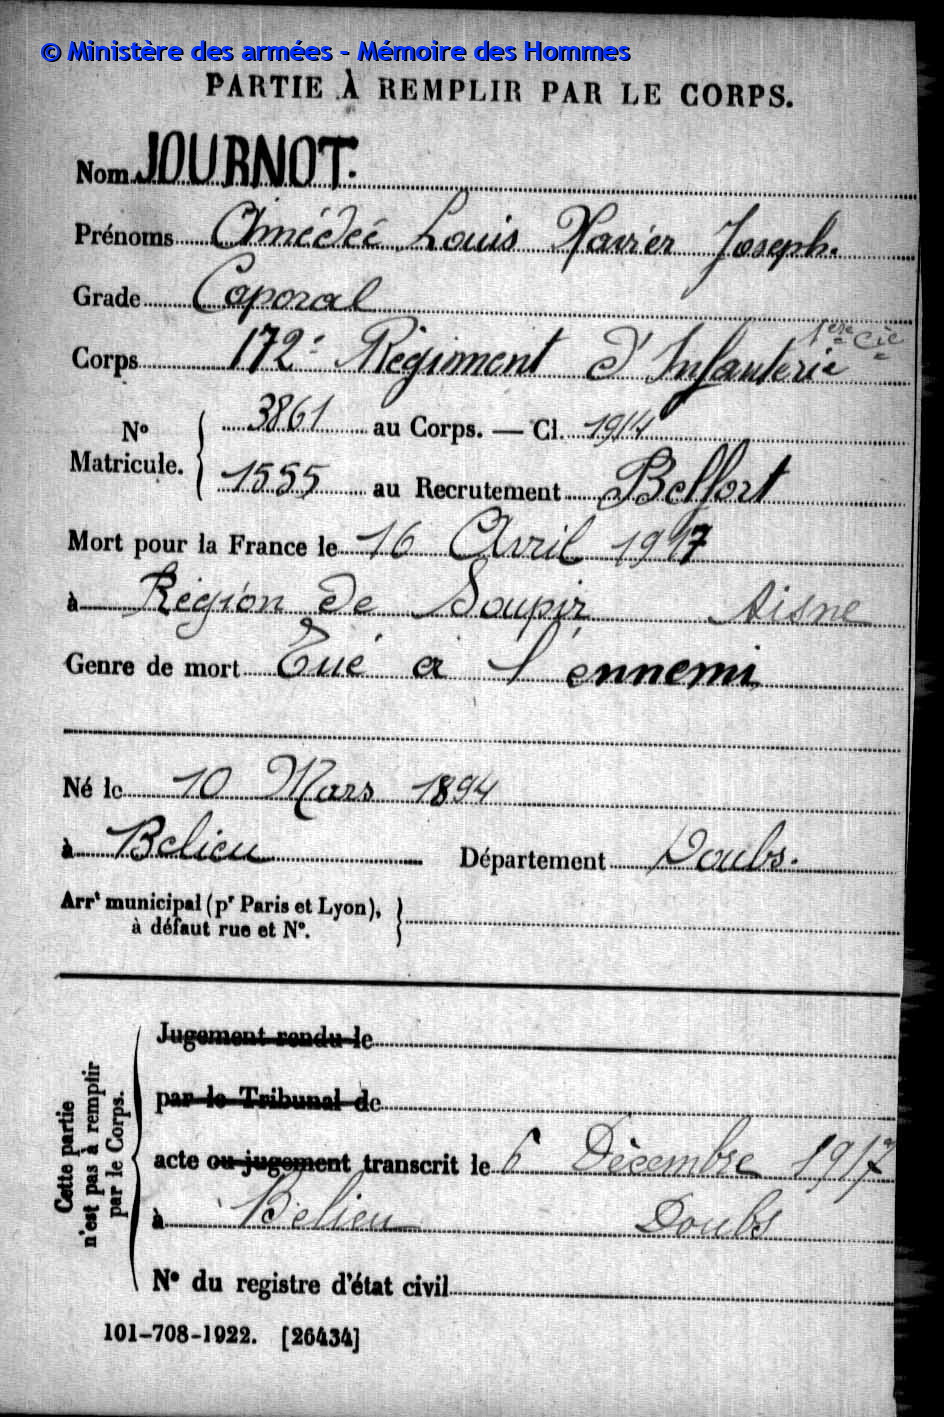 © Ministère des armées - Mémoire des Hommes
PARTIE À REMPLIR PAR LE CORPS.
Nom JOURNOT.
Prénoms Amédée Louis Xavier Joseph.
Grade Caporal
1ère Cie
Corps 172e Régiment d'Infanterie
N° Matricule. { 3861 au Corps. — Cl. 1914
1555 au Recrutement Belfort
Mort pour la France le 16 Avril 1917
à Région de Soupir Aisne
Genre de mort Tué à l'ennemi
Né le 10 Mars 1894
à Belieu Département Doubs.
Arrt municipal (pr Paris et Lyon), }
à défaut rue et N°.
Cette partie
n'est pas à remplir
par le Corps.
Jugement rendu le
par le Tribunal de
acte ou jugement transcrit le 6 Décembre 1917
à Belieu Doubs
N° du registre d'état civil
101-708-1922. [26434]